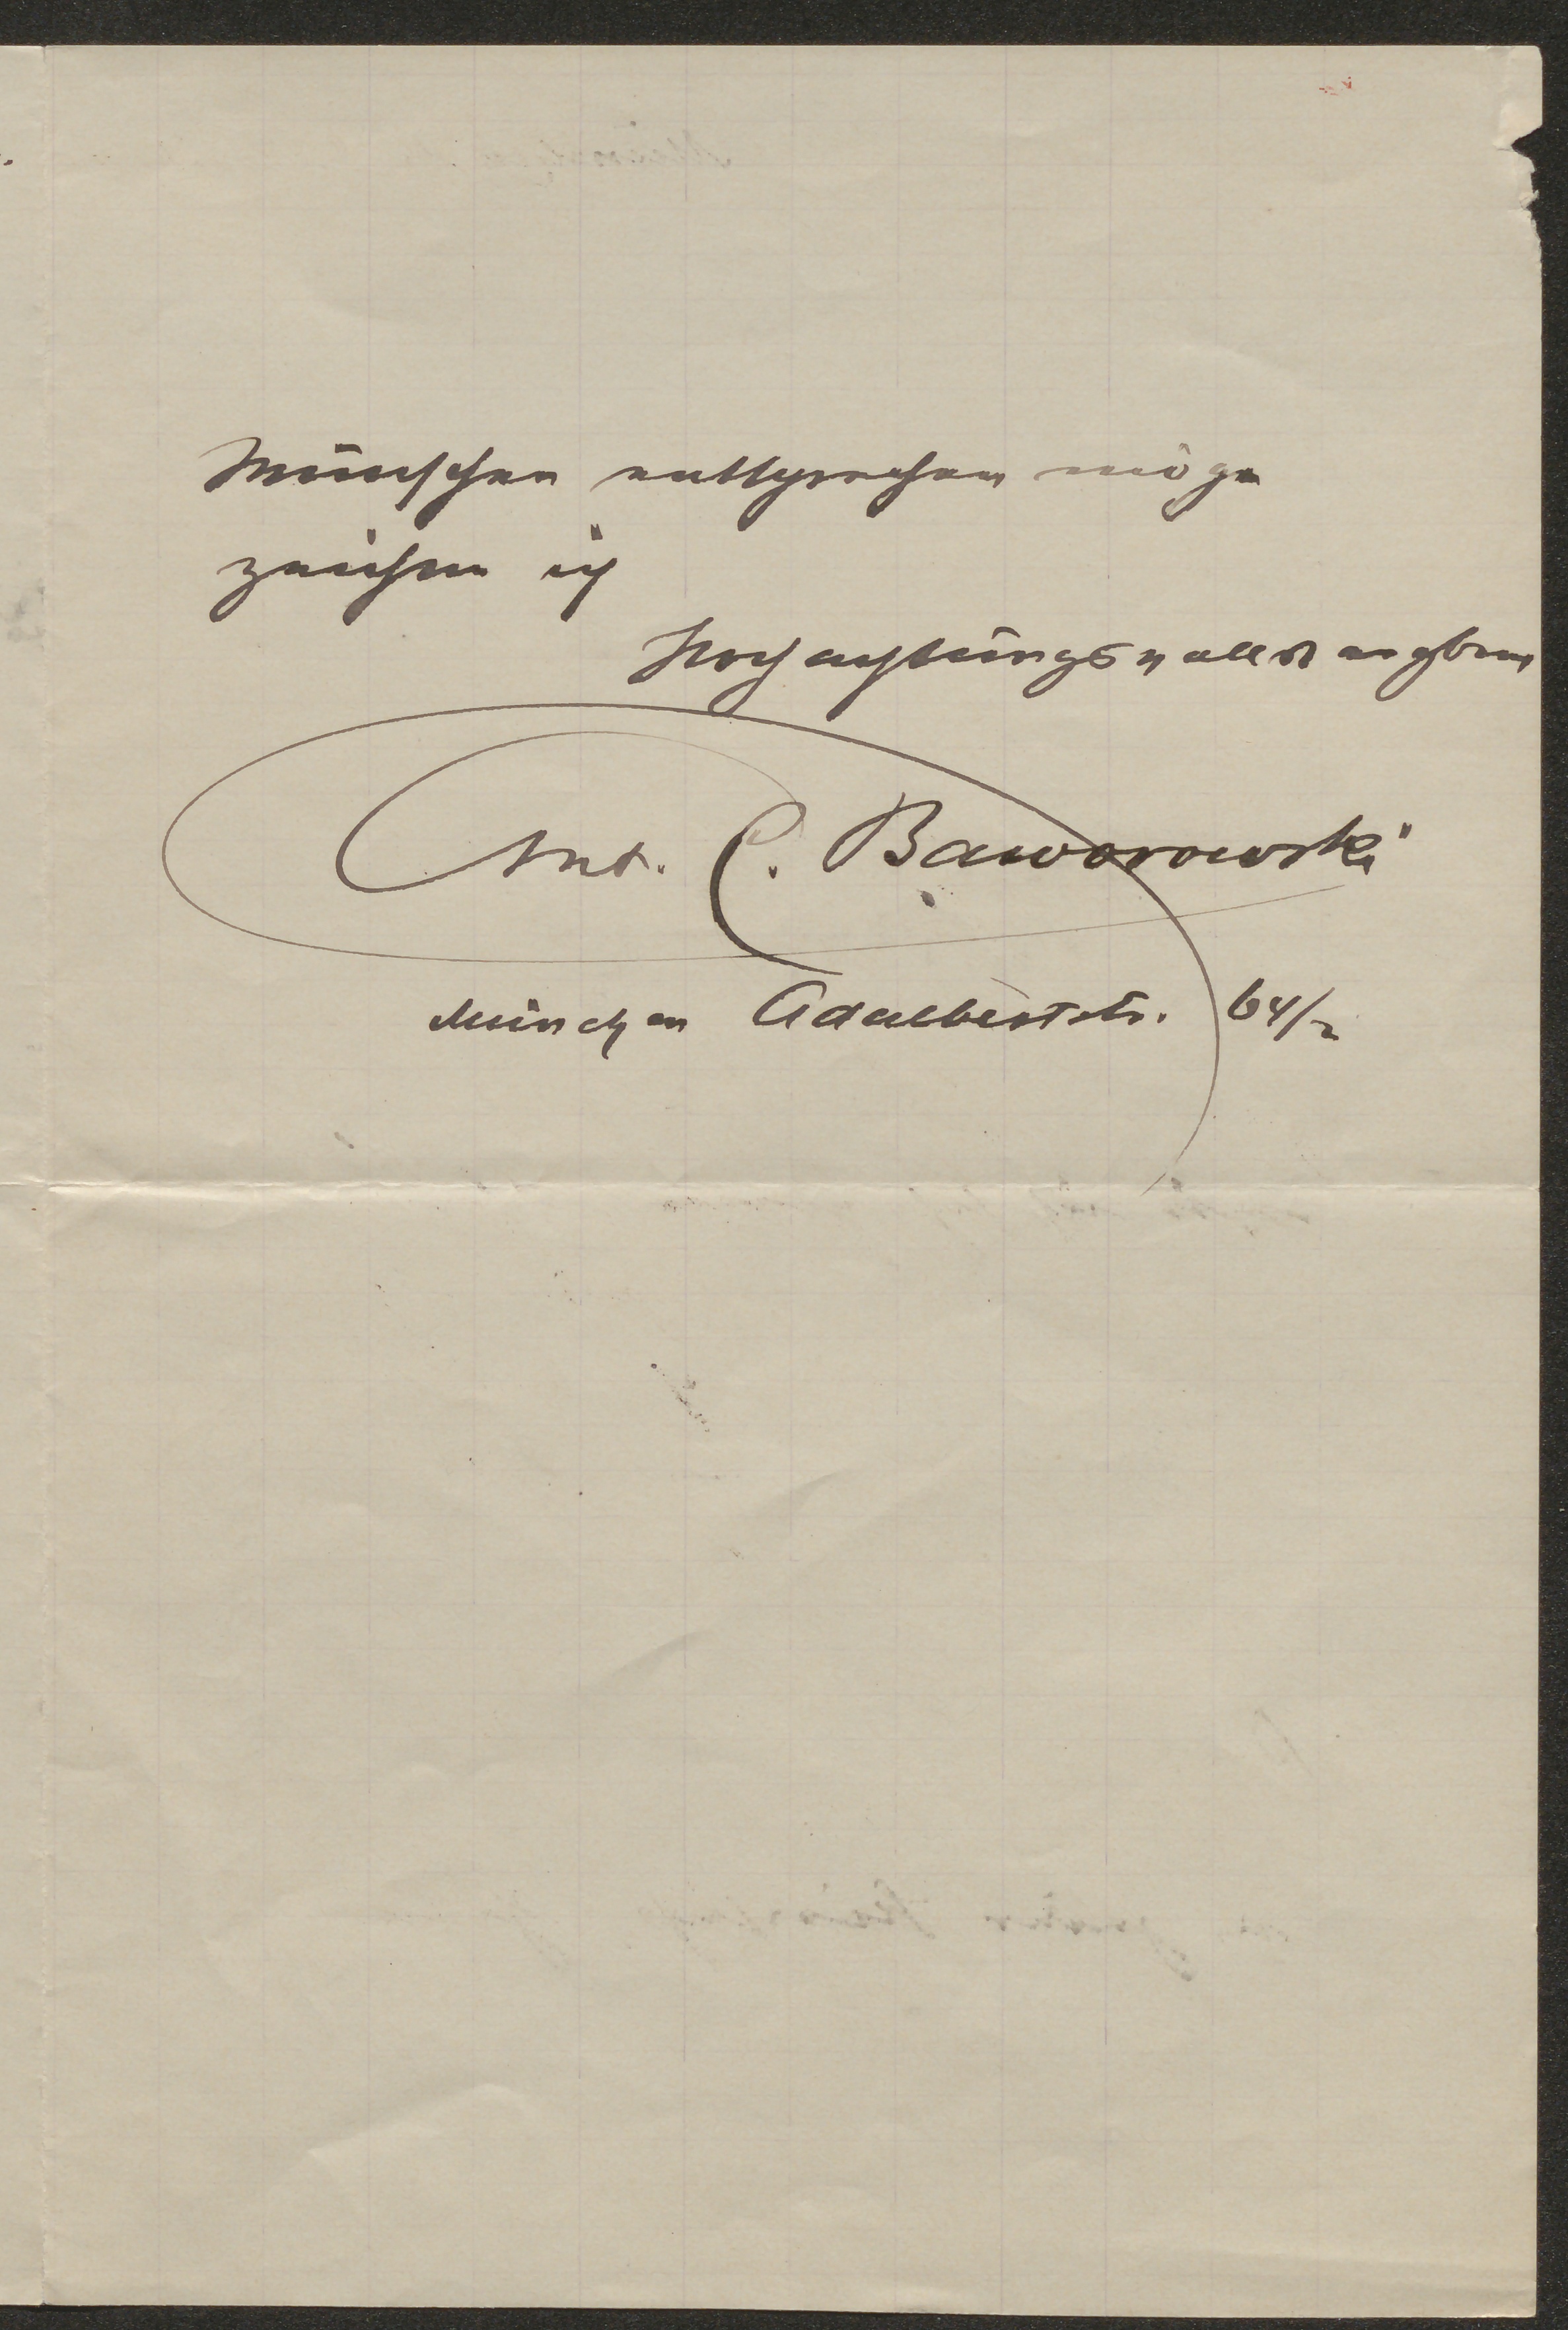 Wünschen entsprechen möge
zeichne ich
Hochachtungsvollst ergebens
Ant. C. Baworowski
München Adalbertstr. 64/2